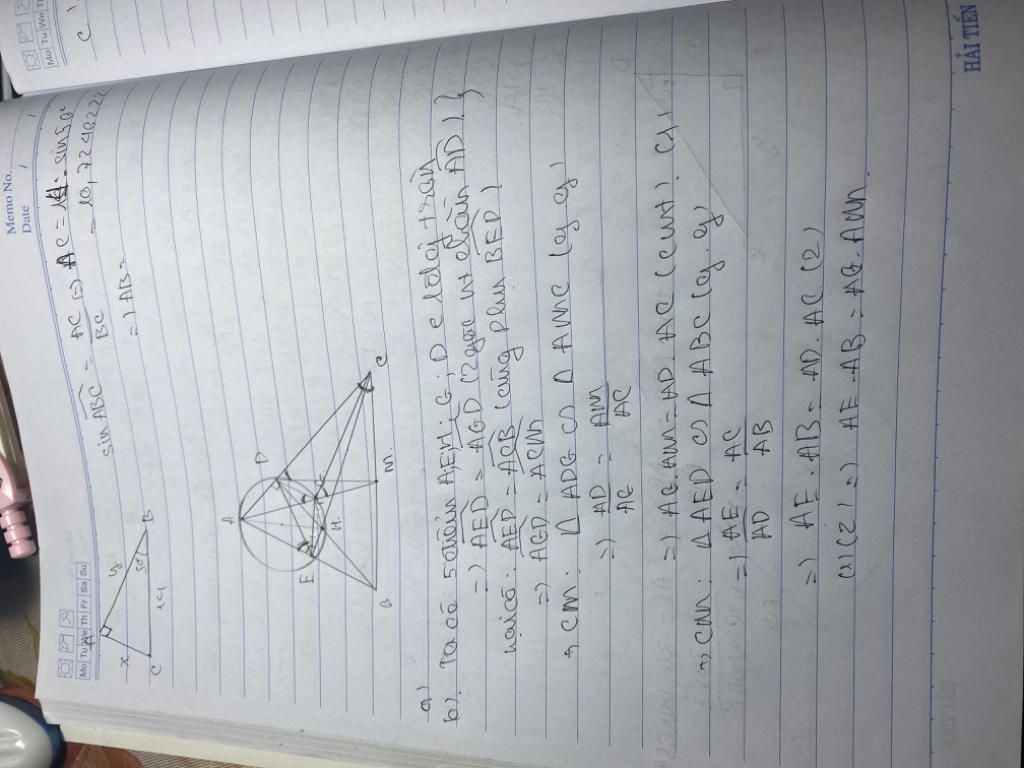 Memo No.
Date / /
Mo Tu We Th Fr Sa Su
x
y
C
14
50°
B
sin ABC = AC / BC => AC = 14. sin 50°
= 10,72462222
=> AB =
A
D
E
H
G
B
M
C
a)
b). Ta có 5 điểm A, E, H, G, D ∈ 1 đường tròn
=> AED = AGD (2 góc nt chắn AD)
Lại có: AED = ACB (cùng phụ BED)
=> AGD = ACM
+, CM: Δ ADG ∽ Δ AMC (g.g)
=> AD / AG = AM / AC
=> AG. AM = AD. AC (cmt). (1)
+, CM: Δ AED ∽ Δ ABC (g.g)
=> AE / AD = AC / AB
=> AE. AB = AD. AC (2)
(1)(2) => AE. AB = AG. AM.
HẢI TIẾN
Mo Tu We Th
C